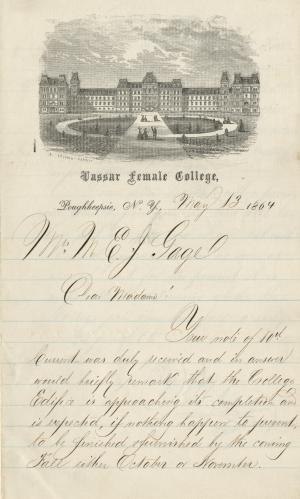 Vassar Female College,
Poughkeepsie, N. Y. May 13 1864
Mrs M E J Gage
Dear Madam:
Your note of 10th
Current was duly received and in answer
would briefly remark that the College
Edifice is approaching its completion and
is expected, if nothing happen to prevent,
to be finished & furnished by the coming
Fall either October or November.